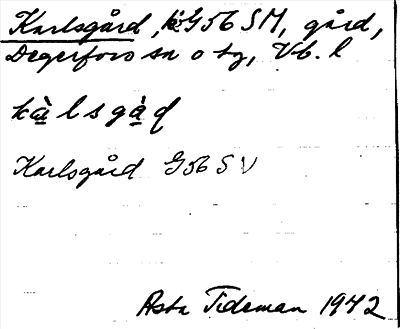 Karlsgård, G56 SM, gård,
Degerfors sn o tg, Vb. l
kàlsgàd
Karlsgård G56 SV
Asta Tideman 1942